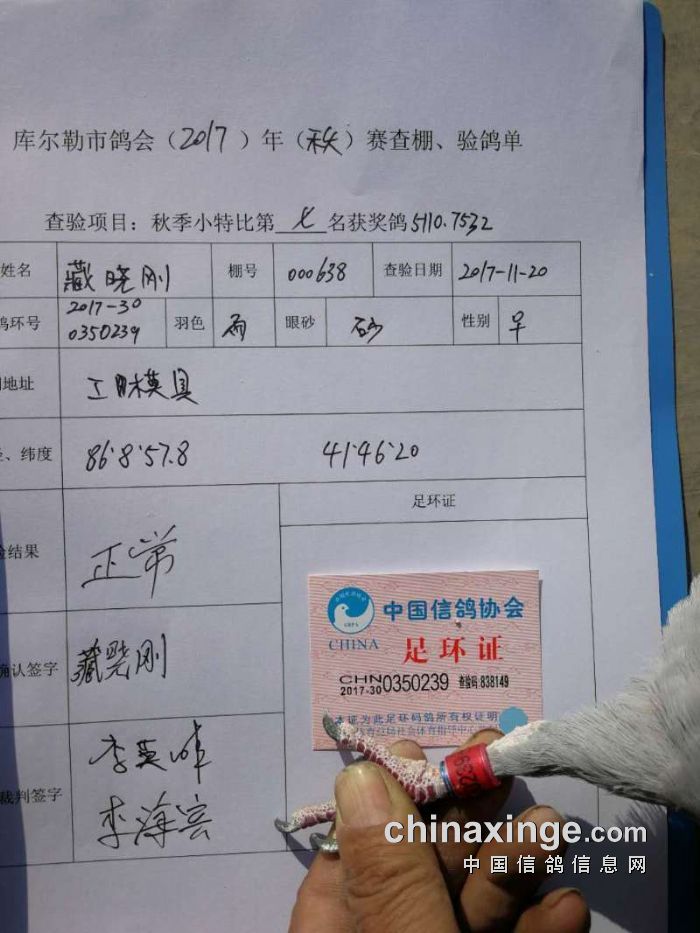 库尔勒市鸽会（2017）年（秋）赛查棚、验鸽单
查验项目：秋季小特比第 七 名获奖鸽5110.7532
姓名 藏晓刚 棚号 000638 查验日期 2017-11-20
鸽环号 2017-30 0350239 羽色 雨 眼砂 砂 性别 早
地址 模具
、纬度 86°8'57.8 41°46'20
足环证
验结果 正常
中国信鸽协会
CHINA
足环证
CHN
2017-30 0350239 查验码:838149
本证为此足环码鸽所有权证明
确认签字 藏晓刚
裁判签字
chinaxinge.com
中国信鸽信息网